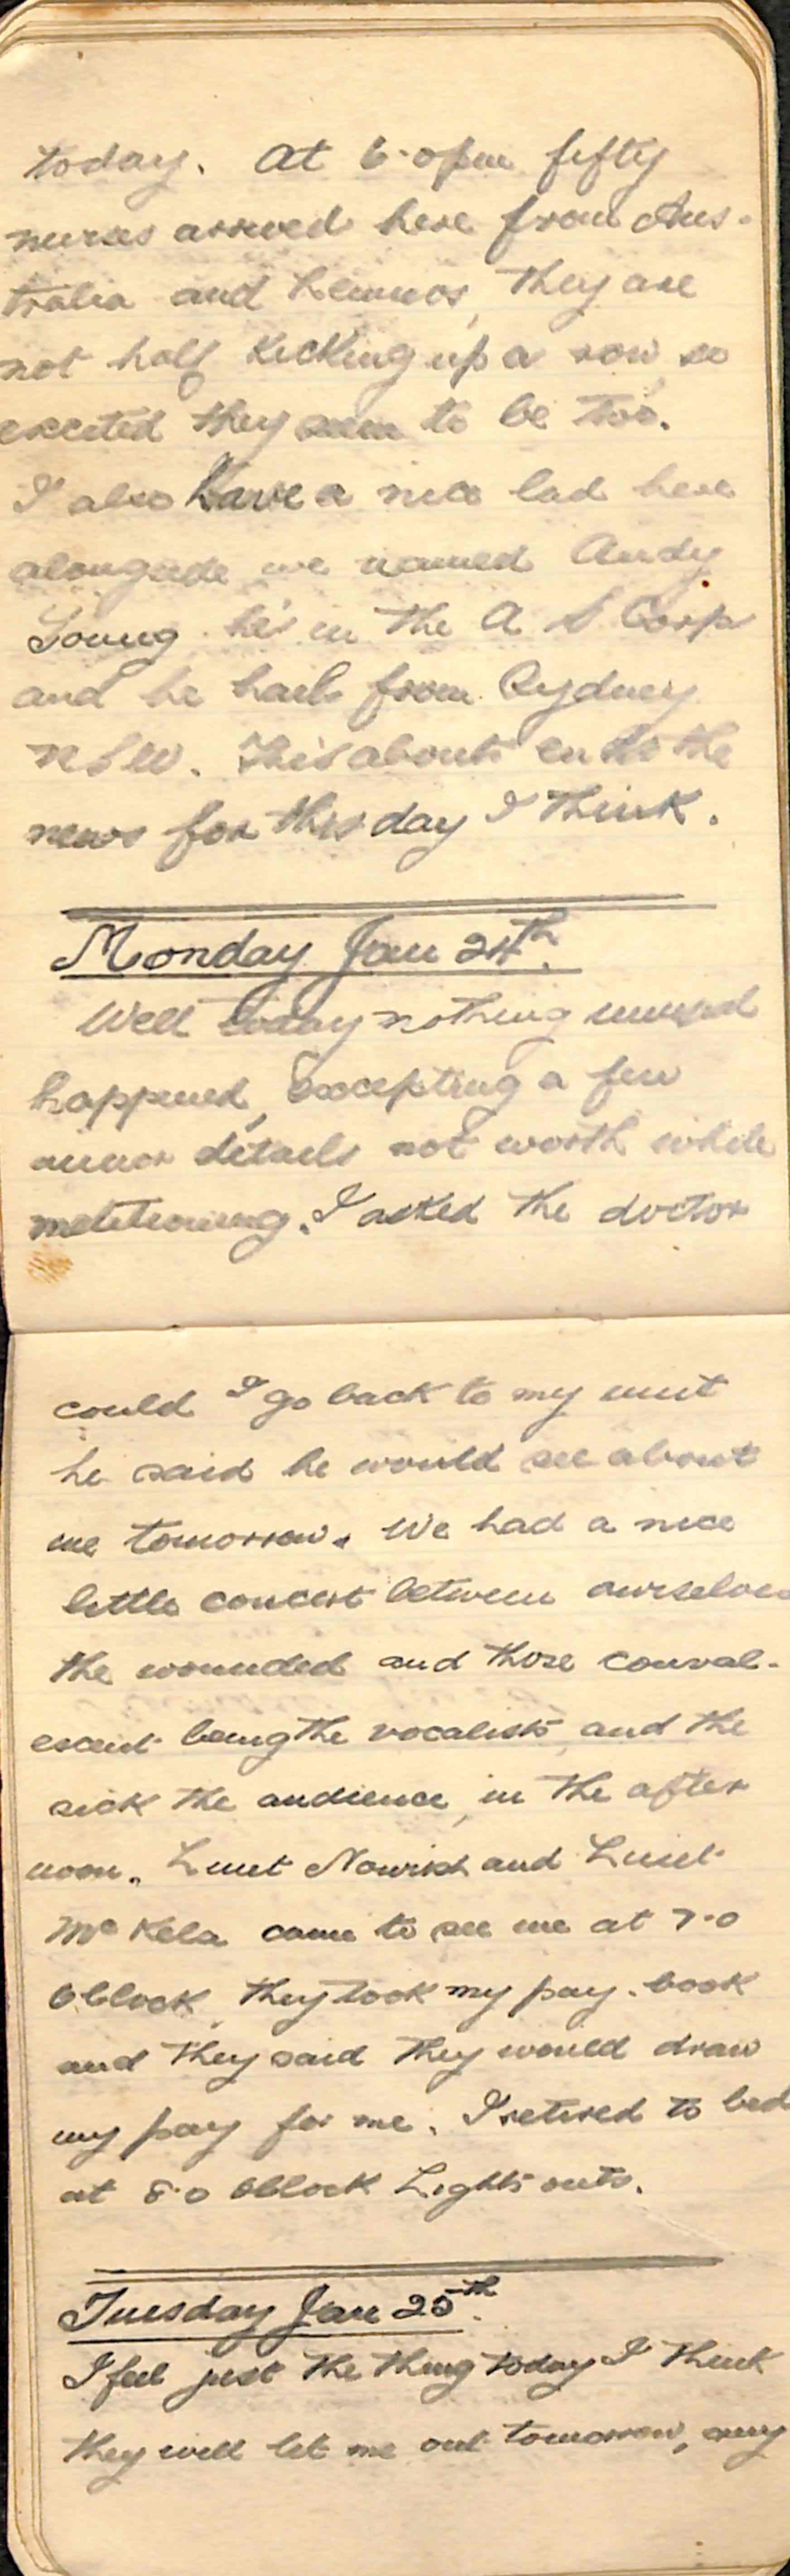 today. At 6.0pm fifty
nurses arrived here from Aus-
tralia and Lemnos, they are
not half kicking up a row, so
excited they seem to be too.
I also have a nice lad here
alongside me named Andy
Young he's in the A S Corp
and he hails from Sydney
NSW. This abouts ends the
news for this day I think.
Monday Jan 24th.
Well today nothing unusual
happened, excepting a few
minor details not worth while
metitioning. I asked the doctor
could I go back to my unit
he said he would see about
me tomorrow. We had a nice
little concert between ourselves
the wounded and those conval-
escent being the vocalists, and the
sick the audience, in the after
noon. Lieut Nowish and Lieut
McKela came to see me at 7.0
Oclock, they took my pay-book
and they said they would draw
my pay for me. I retired to bed
at 8.0 Oclock Lights outs.
Tuesday Jan 25th.
I feel just the thing today I think
they will let me out tomorrow, any